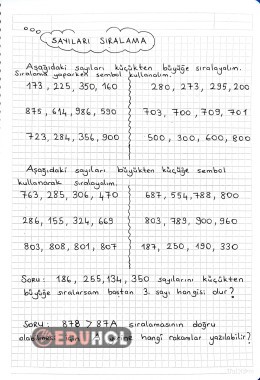 SAYILARI SIRALAMA
Aşağıdaki sayıları küçükten büyüğe sıralayalım.
Sıralama yaparken sembol kullanalım.
173, 225, 350, 160
280, 273, 295, 200
875, 614, 986, 590
703, 700, 709, 701
723, 284, 356, 900
500, 300, 600, 800
Aşağıdaki sayıları büyükten küçüğe sembol
kullanarak sıralayalım.
763, 285, 306, 470
687, 554, 788, 800
286, 155, 324, 669
803, 789, 900, 960
803, 808, 801, 807
187, 250, 190, 330
SORU: 186, 255, 134, 350 sayılarını küçükten
büyüğe sıralarsam baştan 3. sayı hangisi olur?
SORU: 878 > 87A sıralamasının doğru
olabilmesi için yerine hangi rakamlar yazılabilir?
EDUHOJ